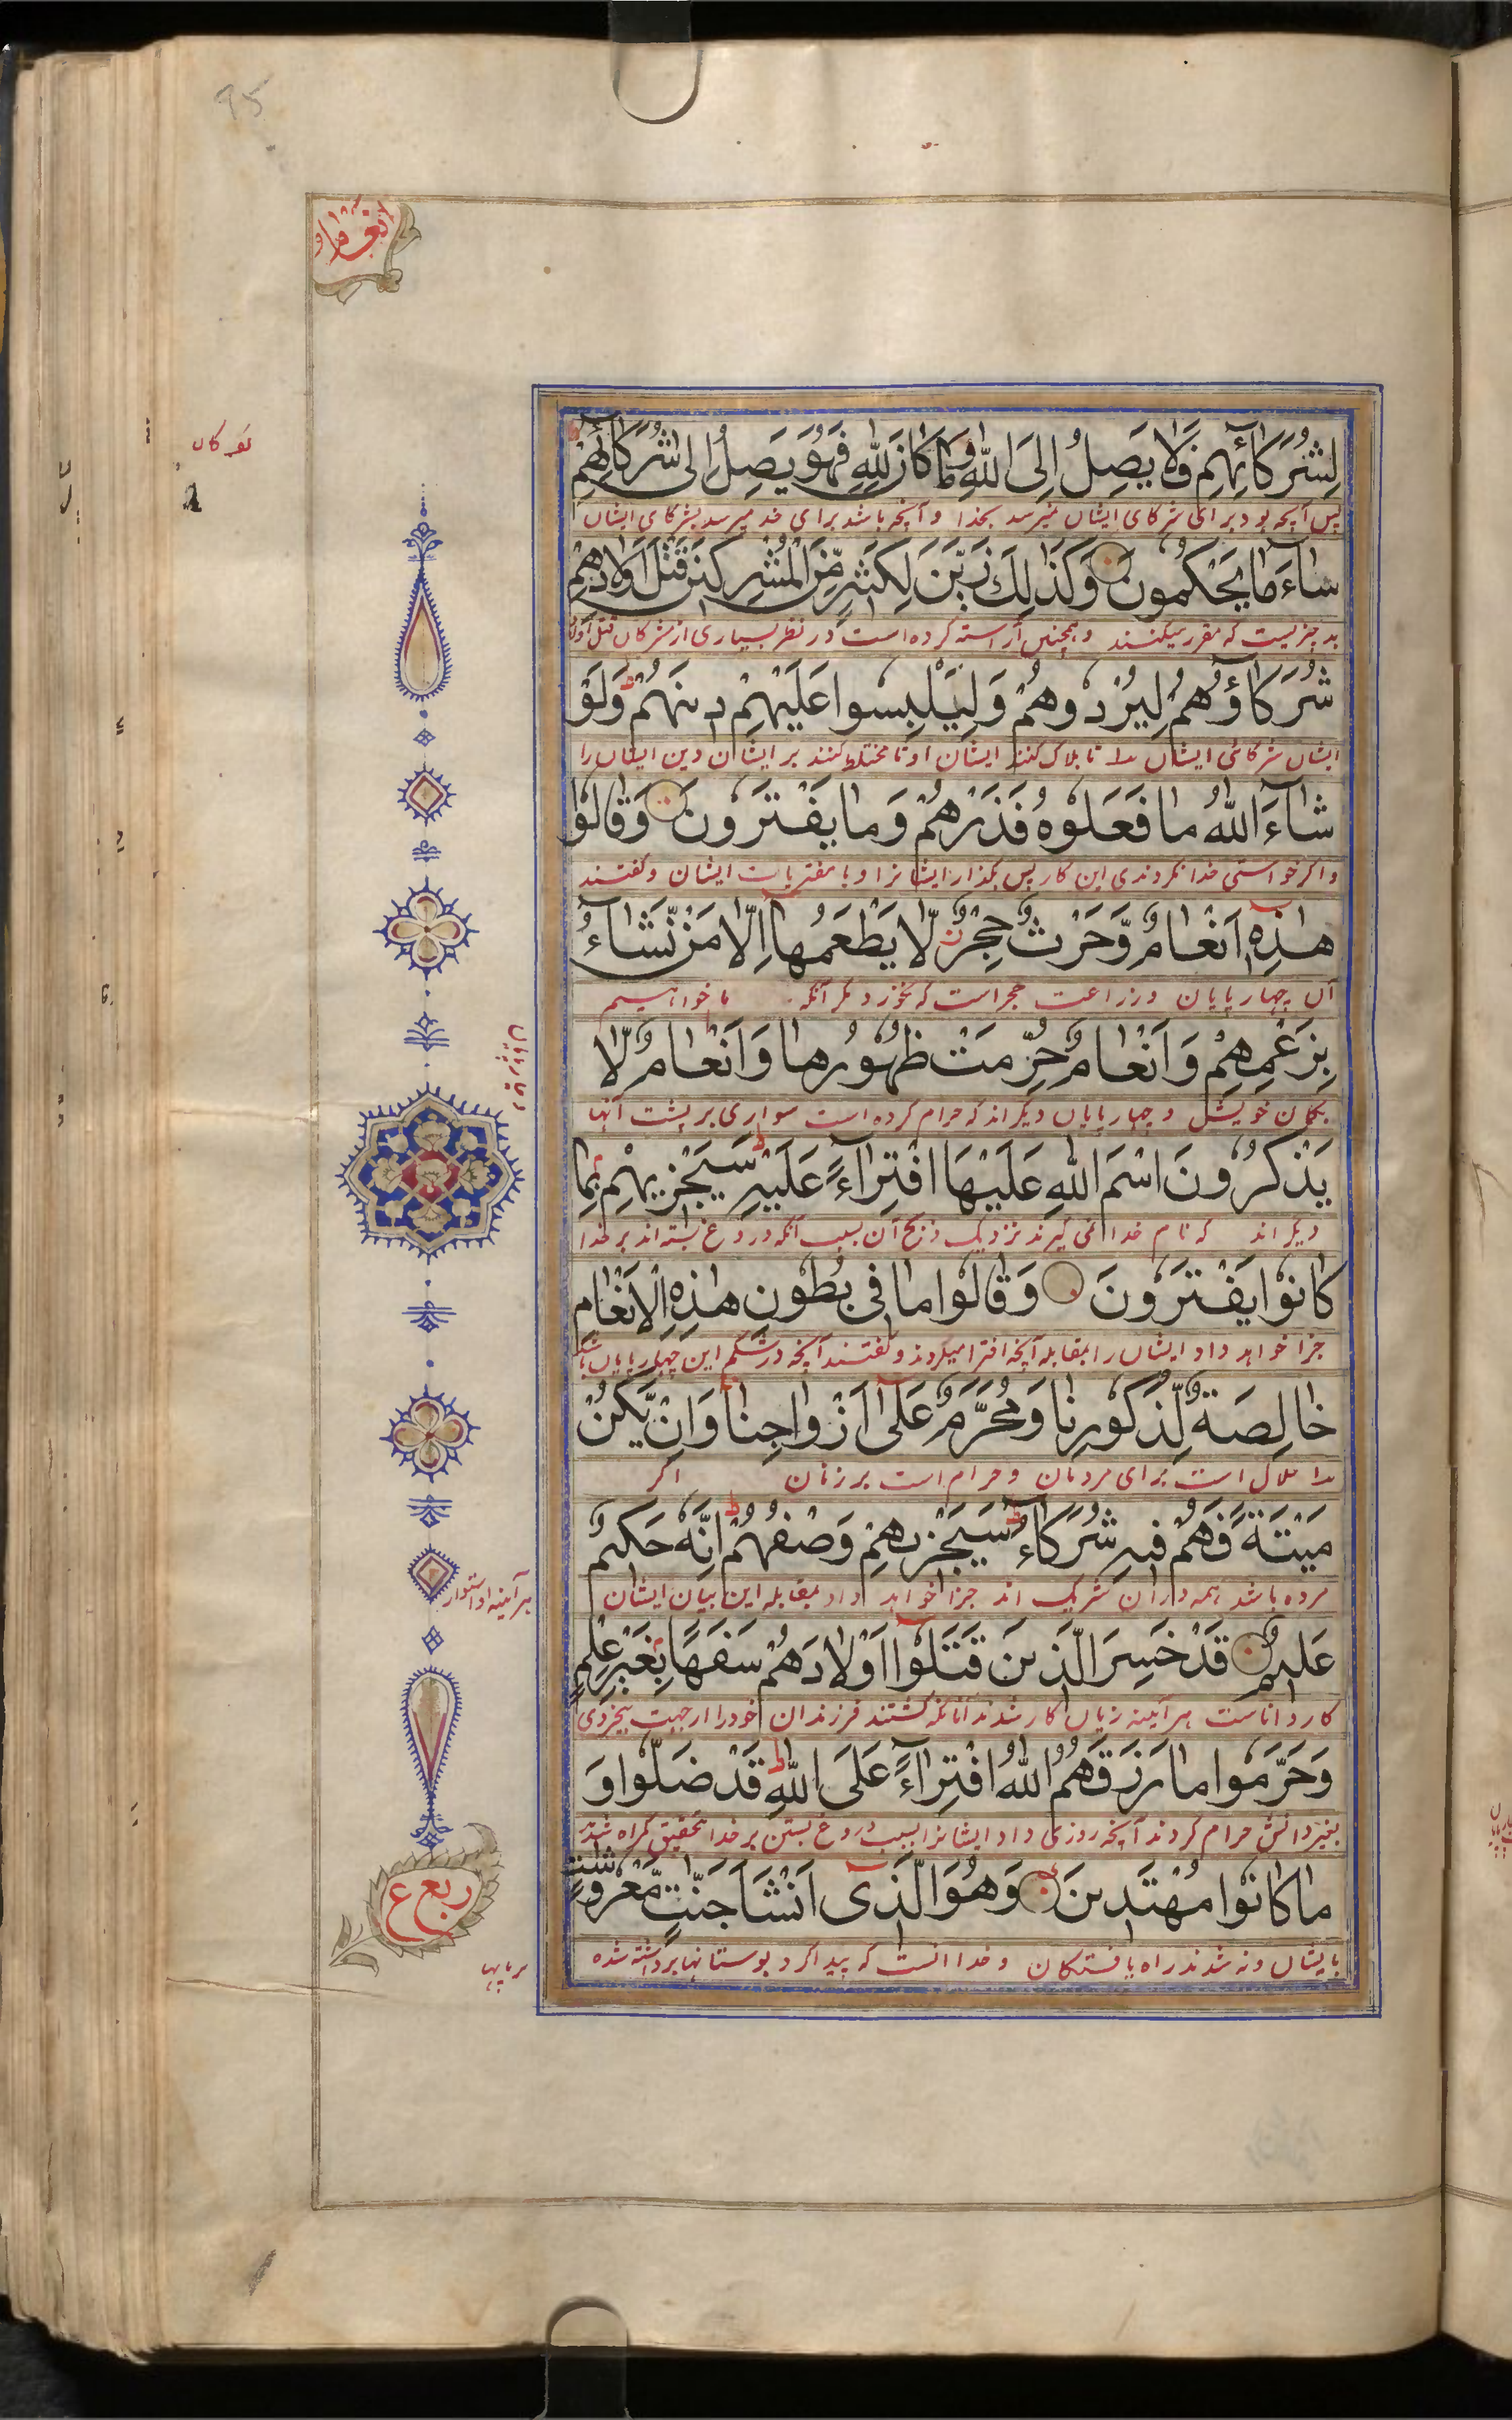 95
انعام
لِشُرَكَآئِهِمْ فَلَا يَصِلُ اِلَى اللّٰهِ وَمَا كَانَ لِلّٰهِ فَهُوَ يَصِلُ اِلٰى شُرَكَآئِهِمْ
پس آنچه بود برای شرکای ایشان نمیرسد بخدا و آنچه باشد برای خدا میرسد بشرکای ایشان
سَآءَ مَا يَحْكُمُونَ وَكَذٰلِكَ زَيَّنَ لِكَثِيرٍ مِّنَ الْمُشْرِكِينَ قَتْلَ اَوْلَادِهِمْ
بد چیزیست که مقرر میکنند و همچنین آراسته کرده است در نظر بسیاری از مشرکان قتل اولاد
شُرَكَآؤُهُمْ لِيُرْدُوهُمْ وَلِيَلْبِسُوا عَلَيْهِمْ دِينَهُمْ ط وَلَوْ
ایشان شرکای ایشان تا هلاک کنند ایشان را و تا مختلط کنند بر ایشان دین ایشان را
شَآءَ اللّٰهُ مَا فَعَلُوهُ فَذَرْهُمْ وَمَا يَفْتَرُونَ وَقَالُوْا
و اگر خواستی خدا نکردندی این کار پس بگذار ایشانرا و با مفتریات ایشان و گفتند
هٰذِهٖٓ اَنْعَامٌ وَّحَرْثٌ حِجْرٌ لَّا يَطْعَمُهَآ اِلَّا مَنْ نَّشَآءُ
آن چهارپایان و زراعت حجر است که نخورد مگر آنکه ما خواهیم
بِزَعْمِهِمْ وَاَنْعَامٌ حُرِّمَتْ ظُهُورُهَا وَاَنْعَامٌ لَّا
بگمان خویش و چهارپایان دیگراند که حرام کرده است سواری بر پشت آنها
يَذْكُرُونَ اسْمَ اللّٰهِ عَلَيْهَا افْتِرَآءً عَلَيْهِ ط سَيَجْزِيهِمْ بِمَا
دیگراند که نام خدا نمی گیرند نزدیک ذبح آن بسبب آنکه دروغ بسته اند بر خدا
كَانُوْا يَفْتَرُونَ وَقَالُوا مَا فِى بُطُونِ هٰذِهِ الْاَنْعَامِ
جزا خواهد داد ایشان را بمقابله آنچه افترا میکردند و گفتند آنچه در شکم این چهارپایان
خَالِصَةٌ لِّذُكُورِنَا وَمُحَرَّمٌ عَلٰٓى اَزْوَاجِنَا وَاِنْ يَّكُنْ
حلال است برای مردمان و حرام است بر زنان اگر
مَيْتَةً فَهُمْ فِيهِ شُرَكَآءُ ط سَيَجْزِيهِمْ وَصْفَهُمْ ط اِنَّهٗ حَكِيمٌ
مرده باشد همه در آن شریک اند جزا خواهد داد بمقابله این بیان ایشان
هر آینه او استوار
عَلِيمٌ قَدْ خَسِرَ الَّذِينَ قَتَلُوْٓا اَوْلَادَهُمْ سَفَهًا بِغَيْرِ عِلْمٍ
کار داناست هر آینه زیان کار شدند آنانکه کشتند فرزندان خود را از جهت بیخردی
وَحَرَّمُوا مَا رَزَقَهُمُ اللّٰهُ افْتِرَآءً عَلَى اللّٰهِ ط قَدْ ضَلُّوا وَ
بغیر دانش حرام کردند آنچه روزی داد ایشانرا بسبب دروغ بستن بر خدا بتحقیق گمراه شدند
مَا كَانُوْا مُهْتَدِينَ وَهُوَ الَّذِىٓ اَنْشَاَ جَنّٰتٍ مَّعْرُوشٰتٍ
ایشان و نه شدند راه یافتگان و خدا آنست که پیدا کرد بوستانها برداشته شده
بر پایها
ربع ع